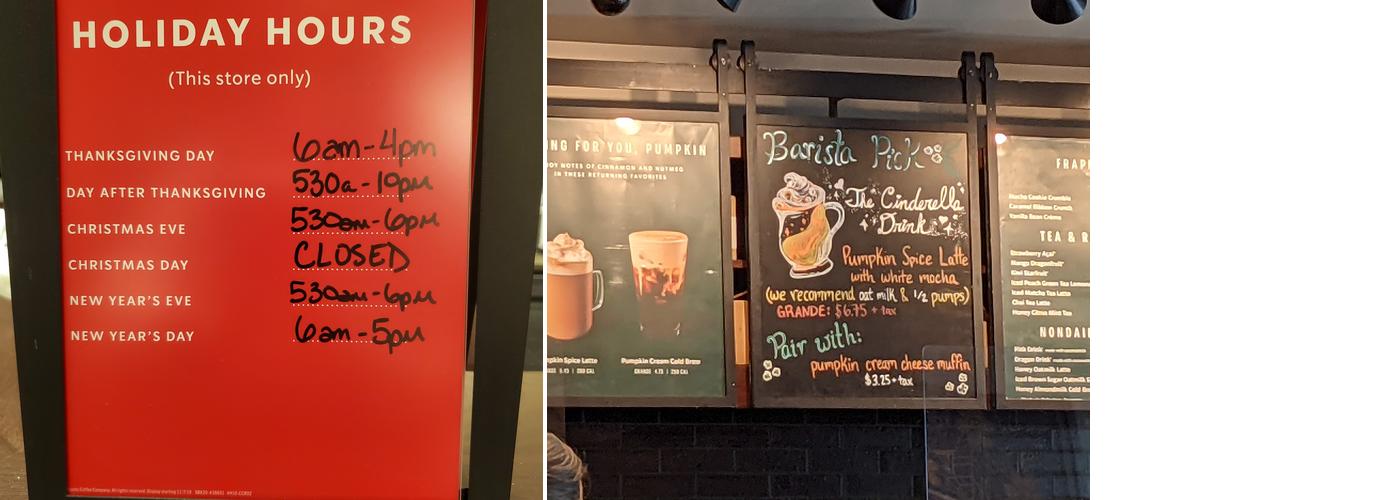 HOLIDAY HOURS
(This store only)
THANKSGIVING DAY 6am-4pm
DAY AFTER THANKSGIVING 530a-10pm
CHRISTMAS EVE 530am-6pm
CHRISTMAS DAY CLOSED
NEW YEAR'S EVE 530am-6pm
NEW YEAR'S DAY 6am-5pm
NG FOR YOU, PUMPKIN
JOY NOTES OF CINNAMON AND NUTMEG
IN THESE RETURNING FAVORITES
pkin Spice Latte
Pumpkin Cream Cold Brew
GRANDE 4.75 | 250 CAL
Barista Pick
The Cinderella
Drink
Pumpkin Spice Latte
with white mocha
(we recommend oat milk & 1/2 pumps)
GRANDE: $6.75 + tax
Pair with:
pumpkin cream cheese muffin
$3.25+tax
FRAP
Mocha Cookie Crumble
Caramel Ribbon Crunch
Vanilla Bean Crème
TEA & R
Strawberry Açaí
Mango Dragonfruit
Kiwi Starfruit
Iced Peach Green Tea Lemona
Iced Matcha Tea Latte
Chai Tea Latte
Honey Citrus Mint Tea
NONDAI
Pink Drink
Dragon Drink
Honey Oatmilk Latte
Iced Brown Sugar Oatmilk S
Honey Almondmilk Cold B